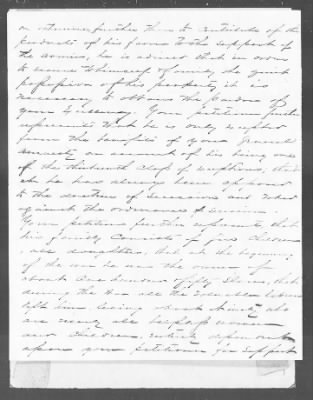 or otherwise further than to contribute of the
products of his farms to the support of
the armies, he is advised that in order
to secure to himself & family the quiet
possession of his property it is
necessary to obtain the pardon of
your Excellency. Your petitioner further
represents that he is only excepted
from the benefits of your general
amnesty on account of his being one
of the thirteenth class of exceptions,
he has always been opposed
to the doctrine of Secession and voted
against the ordinance of Secession.
Your petitioner further represents, that
his family consists of five children
all daughters, that at the beginning
of the war he was the owner of
about One hundred & fifty Slaves, that
during the war all the valuable laborers
left him, leaving about ninety, who
are nearly all helpless women
and children, entirely dependent
upon your petitioner for support